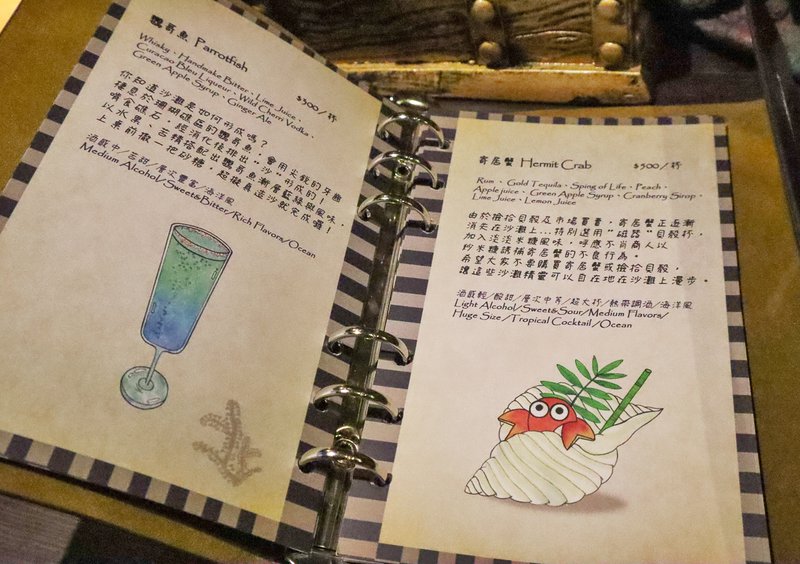 鸚哥魚 Parrotfish
$500/杯
Whisky、Handmake Bitter、Lime Juice、
Curacao Bleu Liqueur、Wild Cherri Vodka、
Green Apple Syrup、Ginger Ale
你知道沙灘是如何形成嗎?
棲息於珊瑚礁區的鸚哥魚,會用尖銳的牙齒
啃食礁石,經消化後排出"沙"形成的!
以水果、苦精搭配出鸚哥魚漸層藍綠與風味,
上桌前撒一把砂糖,超擬真造沙就完成囉!
酒感中/苦甜/層次豐富/海洋風
Medium Alcohol/Sweet&Bitter/Rich Flavors/Ocean
寄居蟹 Hermit Crab
$500/杯
Rum、Gold Tequila、Sping of Life、Peach、
Apple juice、Green Apple Syrup、Cranberry Sirop、
Lime Juice、Lemon Juice
由於撿拾貝殼及市場買賣,寄居蟹正逐漸
消失在沙灘上...特別選用"磁器"貝殼杯,
加入淡淡米糠風味,呼應不肖商人以
炒米糠誘捕寄居蟹的不良行為。
希望大家不要購買寄居蟹或撿拾貝殼,
讓這些沙灘精靈可以自在地在沙灘上漫步。
酒感輕/酸甜/層次中等/超大杯/熱帶調酒/海洋風
Light Alcohol/Sweet&Sour/Medium Flavors/
Huge Size/Tropical Cocktail/Ocean